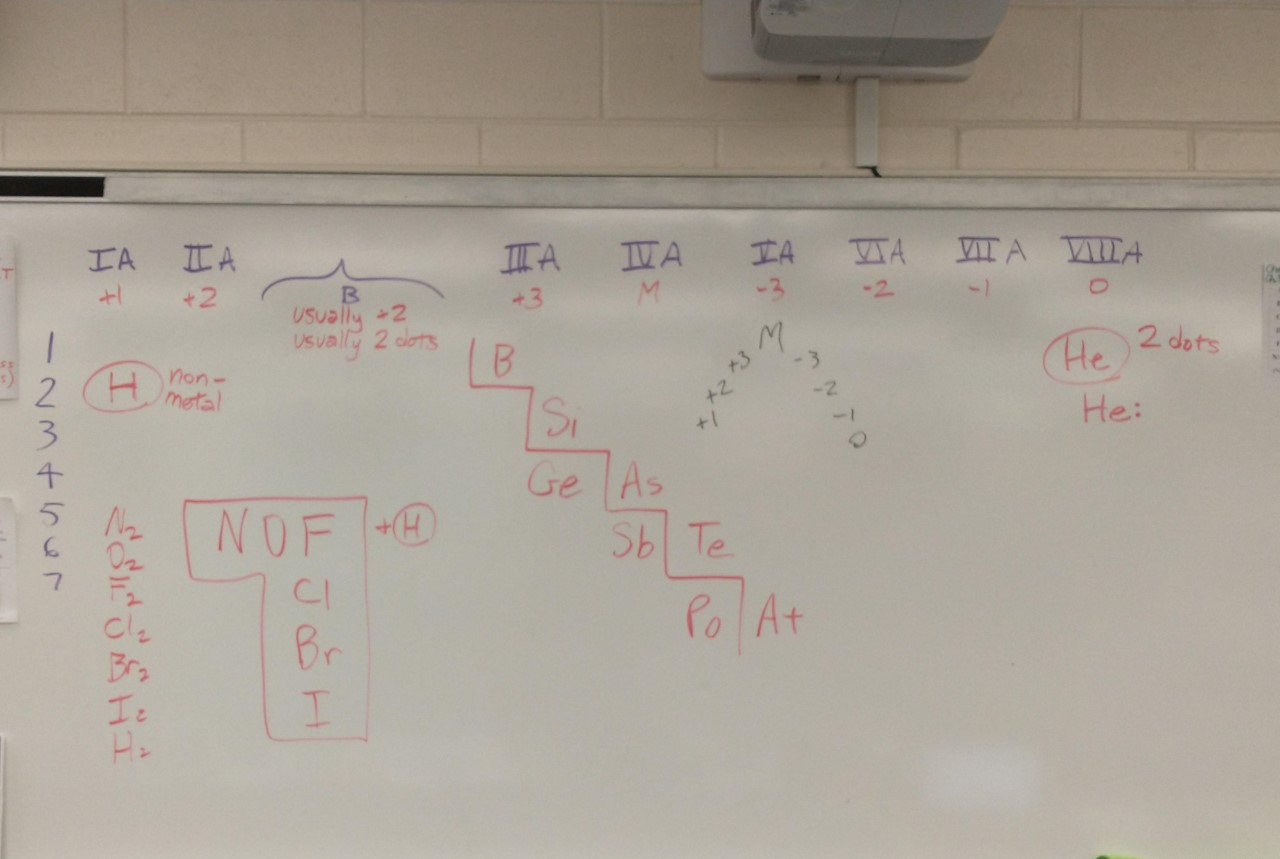 IA IIA IIIA IVA VA VIA VIIA VIIIA
+1 +2 B +3 M -3 -2 -1 0
usually +2
usually 2 dots
1
2
3
4
5
6
7
H non-
metal
B
Si
Ge As
Sb Te
Po At
M
+3 -3
+2 -2
+1 -1
0
He 2 dots
He:
N2
O2
F2
Cl2
Br2
I2
H2
N O F + H
Cl
Br
I